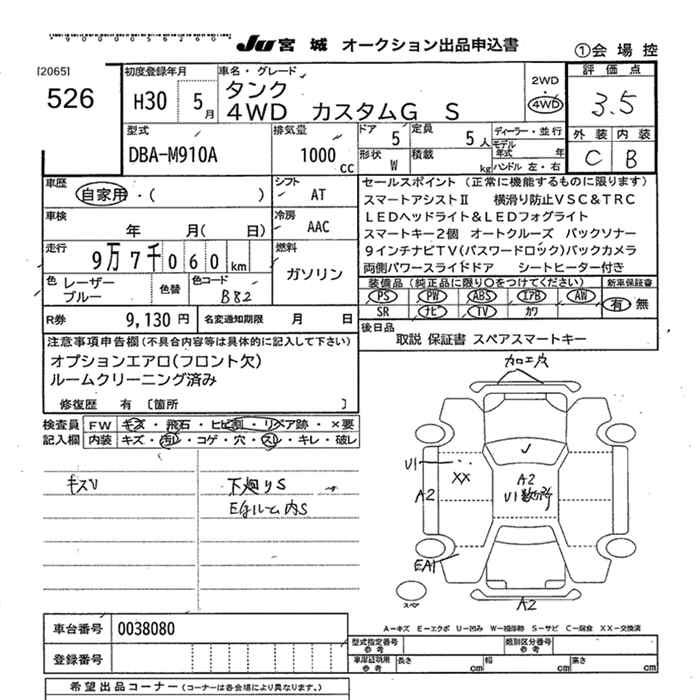 JU 宮城 オークション出品申込書
①会場控
[2065]
526
初度登録年月
H30 5月
車名・グレード
タンク
4WD カスタムG S
2WD
・
4WD
評価点
3.5
外装 内装
C B
型式
DBA-M910A
排気量
1000 cc
ドア 5
定員 5人
ディーラー・並行
モデル年式 年
形状 W
積載 kg
ハンドル 左・右
車歴
自家用・( )
シフト
AT
車検
年 月( 日)
冷房
AAC
走行
9万7千060km
燃料
ガソリン
色 レーザー
ブルー
色替
色コード
B82
R券 9,130円
名変通知期限 月 日
セールスポイント (正常に機能するものに限ります)
スマートアシストⅡ 横滑り防止VSC&TRC
LEDヘッドライト&LEDフォグライト
スマートキー2個 オートクルーズ バックソナー
9インチナビTV(パスワードロック)バックカメラ
両側パワースライドドア シートヒーター付き
装備品(純正品に限り○をつけてください)
新車保証書
PS PW ABS エアB AW
SR ナビ TV カワ
有 無
後日品
取説 保証書 スペアスマートキー
注意事項申告欄(不具合内容等は具体的に記入して下さい)
オプションエアロ(フロント欠)
ルームクリーニング済み
修復歴 有 〔箇所 〕
検査員
記入欄
FW キズ・飛石・ヒビ割・リペア跡・×要
内装 キズ・汚レ・コゲ・穴・スレ・キレ・破レ
キズU
下廻りS
Eルーム内S
加工皮
U1
XX
A2
A2
U1数ヶ所
EA1
スペア
A2
A−キズ E−エクボ U−凹み W−補修跡 S−サビ C−腐食 XX−交換済
車台番号 0038080
登録番号
型式指定番号
参考
類別区分番号
参考
車庫証明用
参考
長さ cm
幅 cm
高さ cm
希望出品コーナー(コーナーは各会場により異なります。)